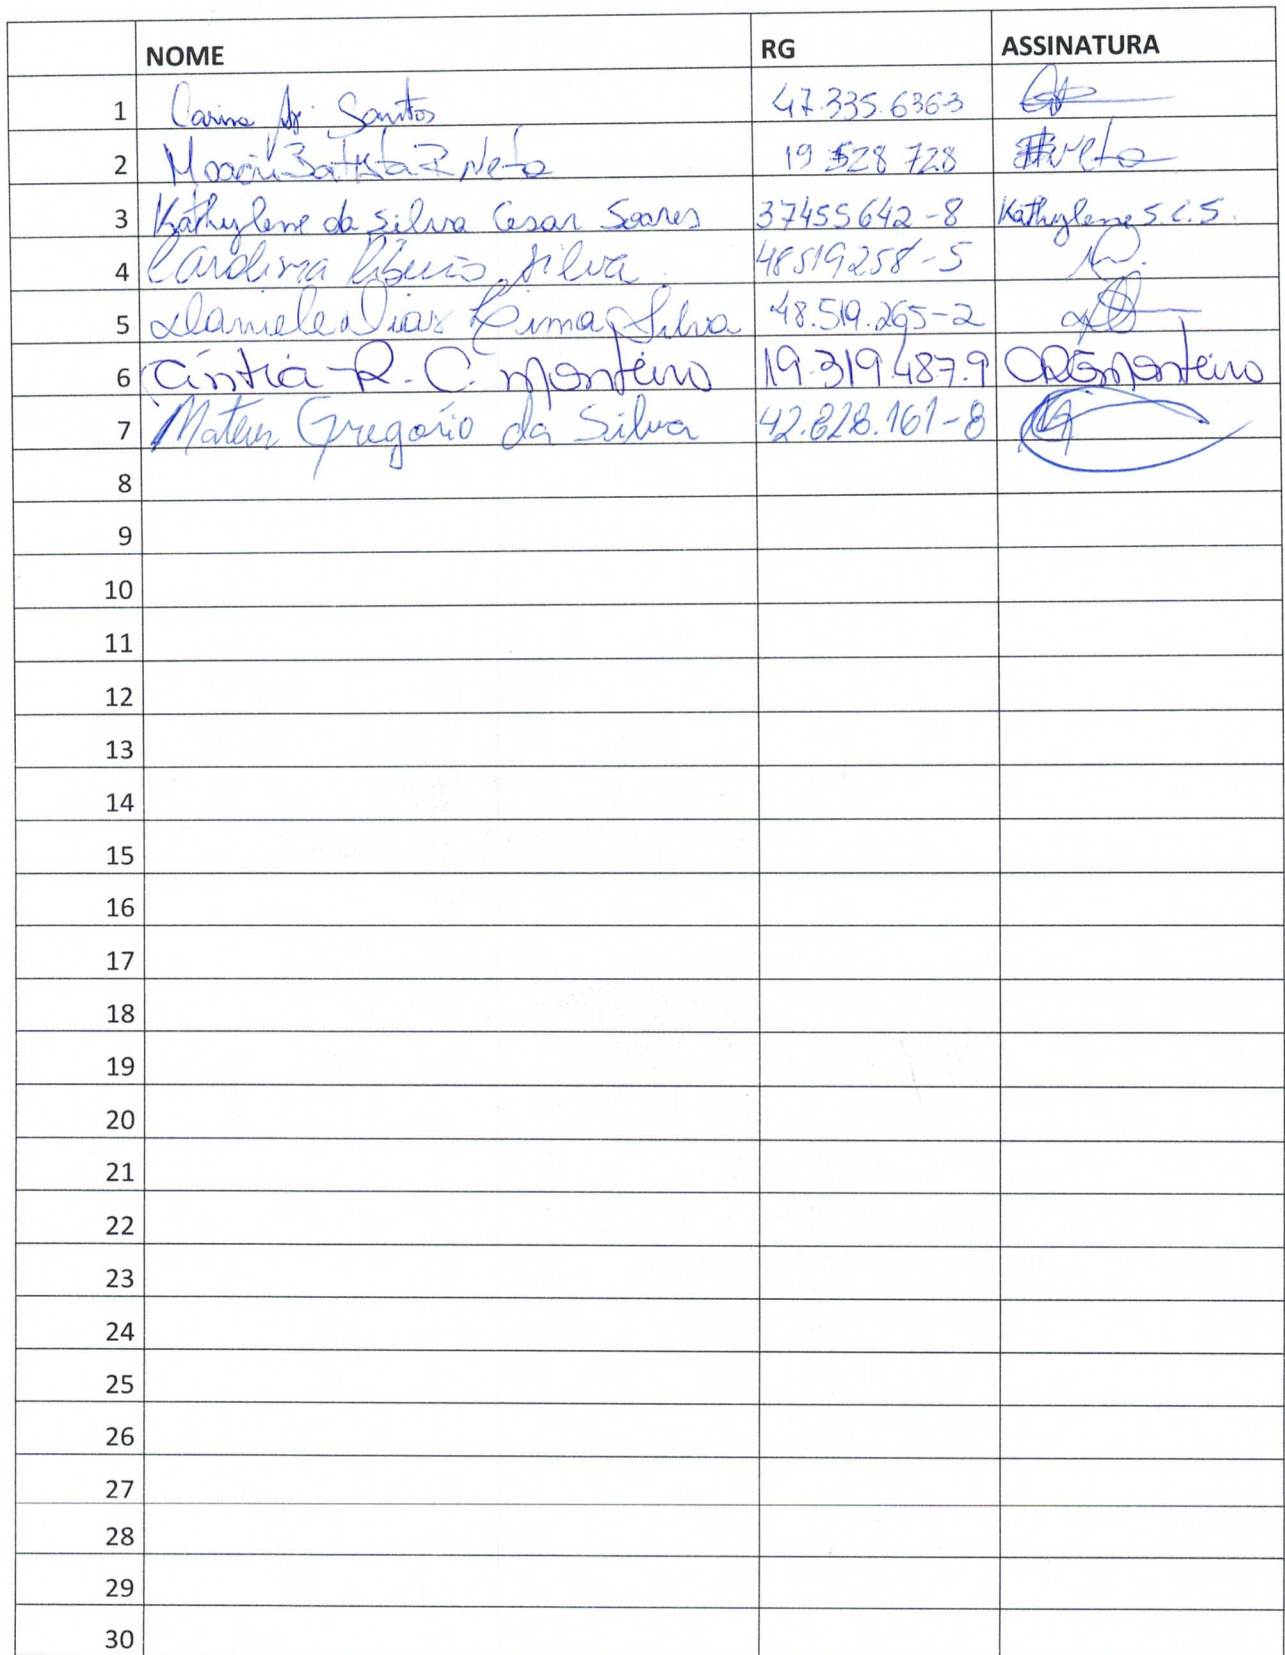 NOME RG ASSINATURA
1 Carina Ap. Santos 47.335.6363
2 Moacir Batista R Neto 19 528 728 Neto
3 Kathylene da Silva Cesar Soares 37455642-8 Kathylene S.C.S.
4 Carolina Ribeiro Silva 48519258-5
5 Daniele Dias Lima Silva 48.519.265-2
6 Cintia R. C. Monteiro 19.319.487.9 CRCMonteiro
7 Mateus Gregório da Silva 42.828.161-8
8
9
10
11
12
13
14
15
16
17
18
19
20
21
22
23
24
25
26
27
28
29
30